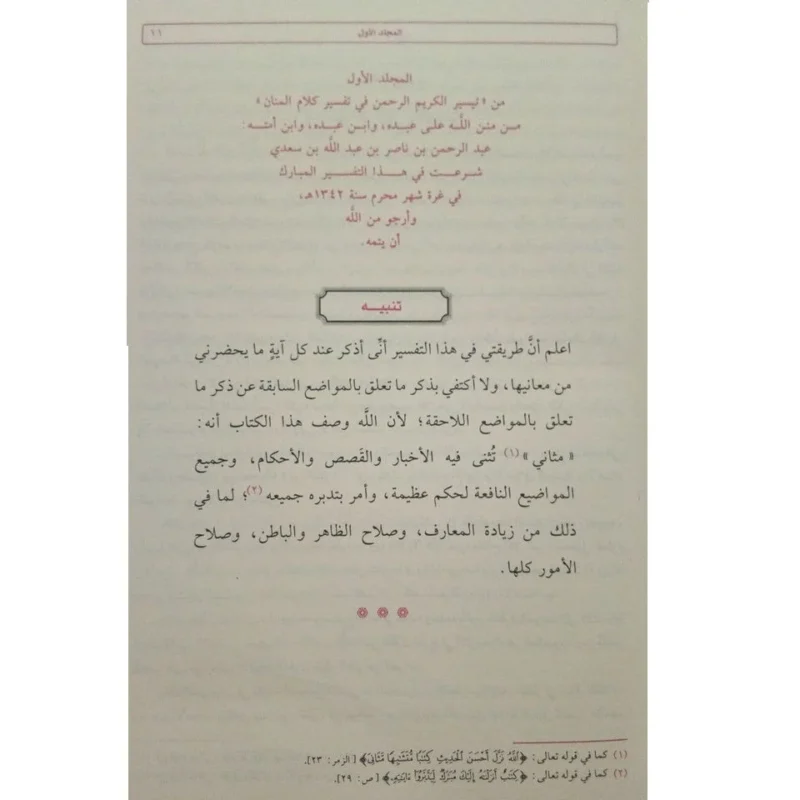 المجلد الأول ١٦
المجلد الأول
من «تيسير الكريم الرحمن في تفسير كلام المنان»
من منن اللَّه على عبده، وابن عبده، وابن أمته:
عبد الرحمن بن ناصر بن عبد اللَّه بن سعدي
شرعت في هذا التفسير المبارك
في غرة شهر محرم سنة ١٣٤٢هـ،
وأرجو من اللَّه
أن يتمه.
تنبيه
اعلم أنَّ طريقتي في هذا التفسير أنِّى أذكر عند كل آيةٍ ما يحضرني
من معانيها، ولا أكتفي بذكر ما تعلق بالمواضع السابقة عن ذكر ما
تعلق بالمواضع اللاحقة؛ لأن اللَّه وصف هذا الكتاب أنه:
«مثاني»(١) تُثنى فيه الأخبار والقَصص والأحكام، وجميع
المواضيع النافعة لحكم عظيمة، وأمر بتدبره جميعه(٢)؛ لما في
ذلك من زيادة المعارف، وصلاح الظاهر والباطن، وصلاح
الأمور كلها.
(١) كما في قوله تعالى: ﴿اللَّهُ نَزَّلَ أَحْسَنَ الْحَدِيثِ كِتَابًا مُّتَشَابِهًا مَّثَانِيَ﴾ [الزمر: ٢٣].
(٢) كما في قوله تعالى: ﴿كِتَابٌ أَنزَلْنَاهُ إِلَيْكَ مُبَارَكٌ لِّيَدَّبَّرُوا آيَاتِهِ﴾ [ص: ٢٩].